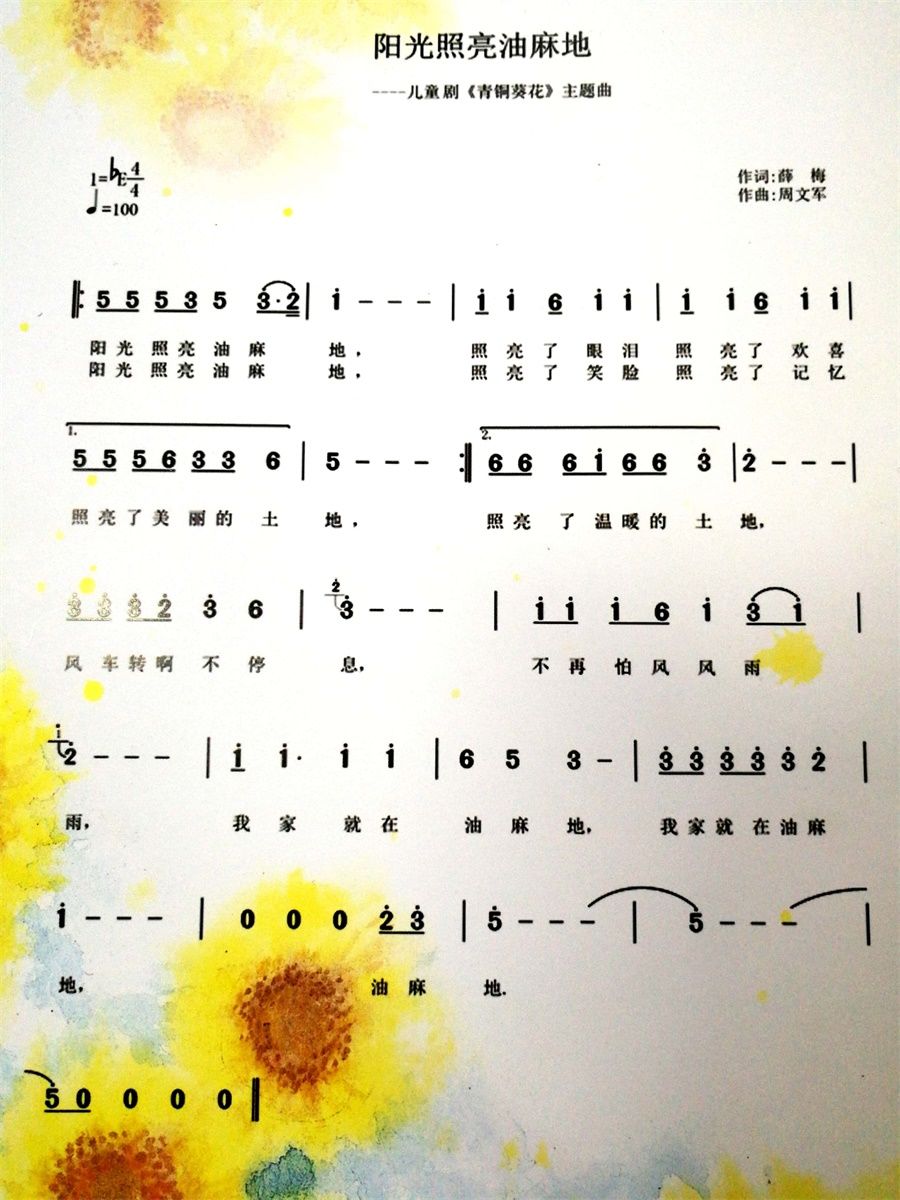 阳光照亮油麻地
----儿童剧《青铜葵花》主题曲
1=♭E 4/4
♩=100
作词:薛 梅
作曲:周文军
5 5 5 3 5 3·2 | i - - - | i i 6 i i | i i 6 i i |
阳光照亮油麻 地, 照亮了眼泪 照亮了欢喜
阳光照亮油麻 地, 照亮了笑脸 照亮了记忆
1. 2.
5 5 5 6 3 3 6 | 5 - - - :| 6 6 6 i 6 6 3̇ | 2̇ - - - |
照亮了美丽的土 地, 照亮了温暖的土地,
3̇ 3̇ 3̇ 2̇ 3̇ 6 | 2̇ 3̇ - - - | i i i 6 i 3̇ i |
风车转啊不停 息, 不再怕风风雨
i 2̇ - - - | i i· i i | 6 5 3 - | 3̇ 3̇ 3̇ 3̇ 3̇ 2̇ |
雨, 我家就在 油麻地, 我家就在油麻
i - - - | 0 0 0 2̇ 3̇ | 5̇ - - - | 5̇ - - - |
地, 油麻 地.
5̇ 0 0 0 0